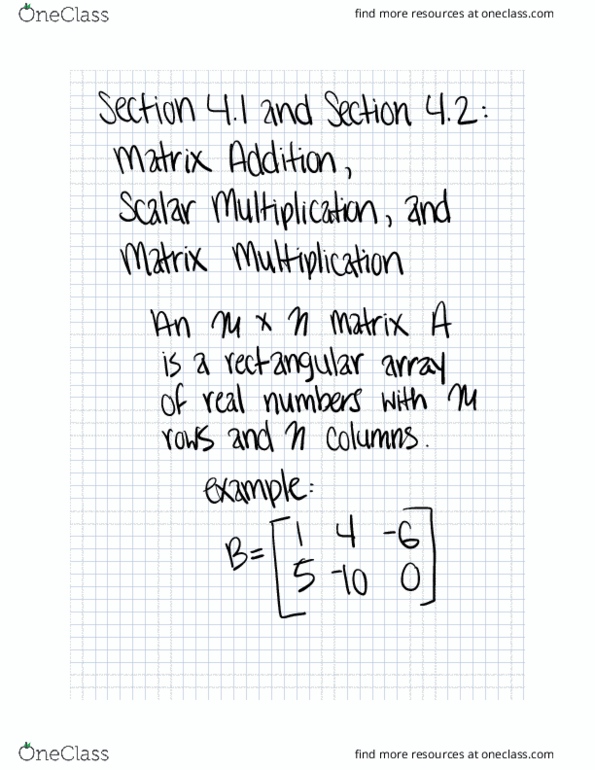 OneClass
find more resources at oneclass.com
Section 4.1 and Section 4.2:
Matrix Addition,
Scalar Multiplication, and
Matrix Multiplication
An m x n matrix A
is a rectangular array
of real numbers with m
rows and n columns.
example:
B= [1 4 -6
5 -10 0]
OneClass
find more resources at oneclass.com